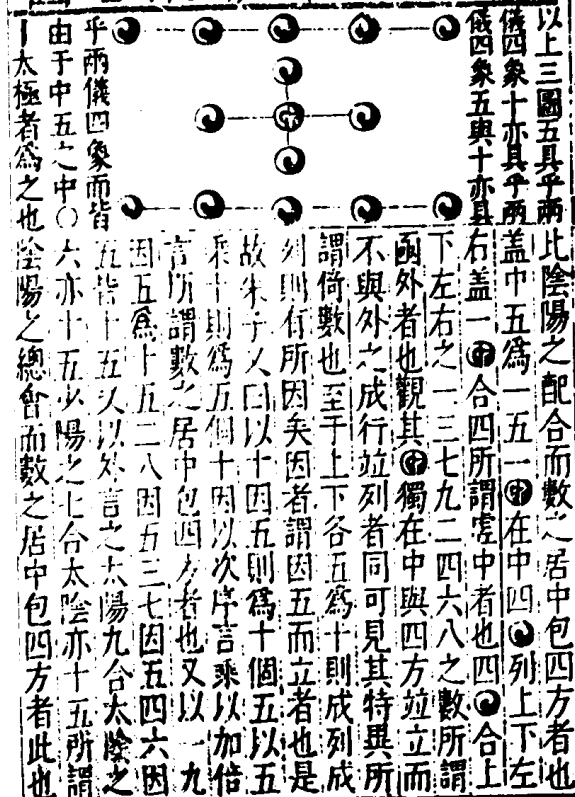 以上三圖五具乎兩
儀四象十亦具乎兩
儀四象五與十亦具
乎兩儀四象而皆
由于中五之中○
一太極者爲之也
此陰陽之配合而數之居中包四方者也
盖中五爲一五一在中四☯列上下左
右盖一合四所謂虛中者也四☯合上
下左右之一三七九二四六八之數所謂
函外者也觀其獨在中與四方竝立而
不與外之成行竝列者同可見其特異所
謂倚數也至于上下各五爲十則成列成
列則有所因矣因者謂因五而立者也是
故朱子又曰以十因五則爲十個五以五
乘十則爲五個十因以次序言乘以加倍
言所謂數之居中包四方者也又以一九
因五爲十五二八因五三七因五四六因
五皆十五又以外言之太陽九合太陰之
六亦十五少陽之七合太陰亦十五所謂
陰陽之總會而數之居中包四方者此也